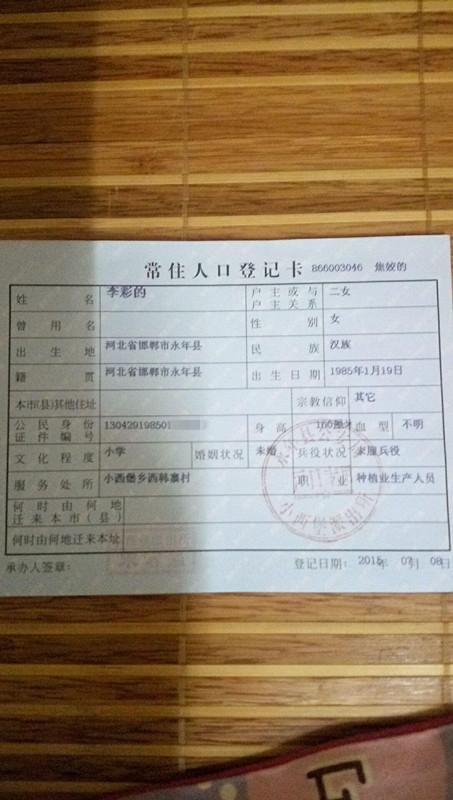 常住人口登记卡 866003046 焦姣的
姓名 李彩的 户主或与户主关系 二女
曾用名 性别 女
出生地 河北省邯郸市永年县 民族 汉族
籍贯 河北省邯郸市永年县 出生日期 1985年1月19日
本市(县)其他住址 宗教信仰 其它
公民身份证件编号 130429198501 身高 160厘米 血型 不明
文化程度 小学 婚姻状况 未婚 兵役状况 未服兵役
服务处所 小西堡乡西韩寨村 职业 种植业生产人员
何时由何地迁来本市(县)
何时由何地迁来本址
承办人签章: 登记日期: 2015年07月08日
小西堡派出所